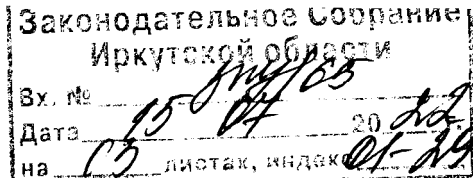 Законодательное Собрание
Иркутской области
Вх. №
Дата 15 07 2022
на 03 листах, индекс 01-29